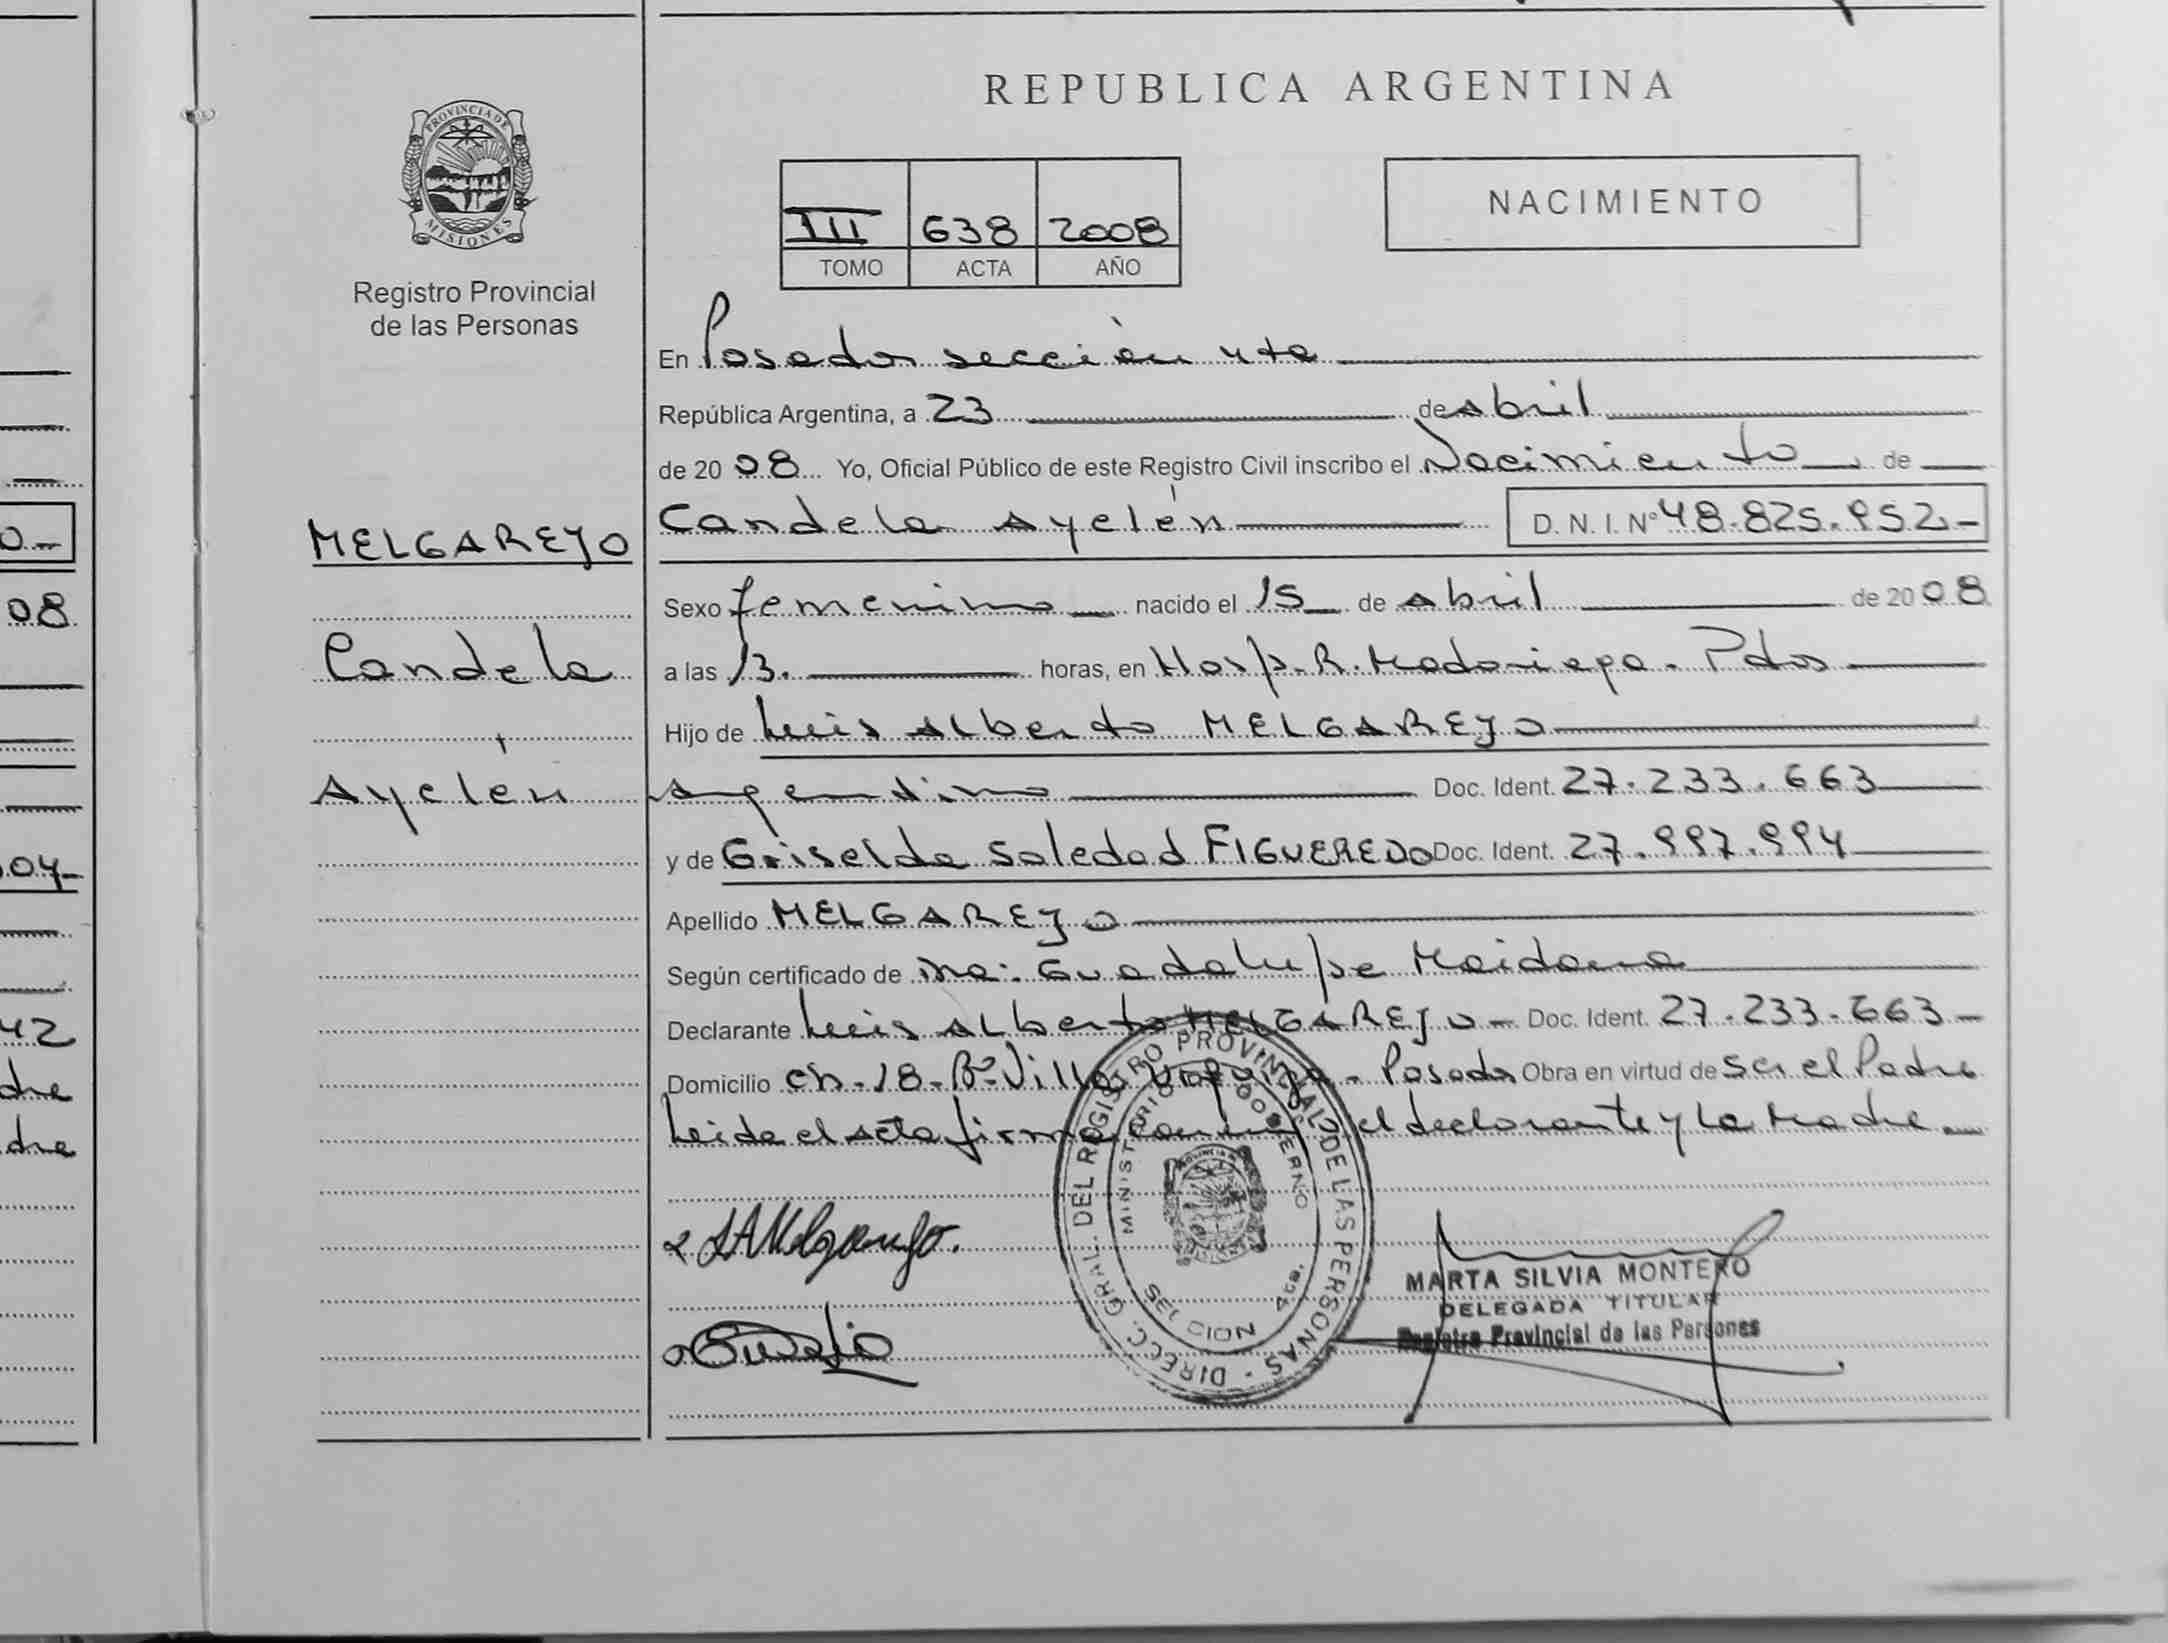 REPUBLICA ARGENTINA
PROVINCIA DE
MISIONES
Registro Provincial
de las Personas
NACIMIENTO
III 638 2008
TOMO ACTA AÑO
En Posadas sección 4ta
República Argentina, a 23 de Abril
de 2008 Yo, Oficial Público de este Registro Civil inscribo el Nacimiento de
Candela Ayelén D. N. I. Nº 48.825.952-
MELGAREJO
Candela
Ayelén
Sexo femenino nacido el 15 de Abril de 2008
a las 13. horas, en Hosp. R. Madariaga. Pdas
Hijo de Luis Alberto MELGAREJO
Argentino Doc. Ident. 27.233.663
y de Griselda Soledad FIGUEREDO Doc. Ident. 27.997.994
Apellido MELGAREJO
Según certificado de Guadalupe Maidana
Declarante Luis Alberto MELGAREJO - Doc. Ident. 27.233.663-
Domicilio ch. 18. Bº Villa Urquiza - Posadas Obra en virtud de ser el Padre
Leida el acta firma el declarante y la Madre
DIRECC. GRAL. DEL REGISTRO PROVINCIAL DE LAS PERSONAS
MINISTERIO DE GOBIERNO
SECCION 4ta.
MARTA SILVIA MONTERO
DELEGADA TITULAR
Registro Provincial de las Personas
08
42
dre
dre